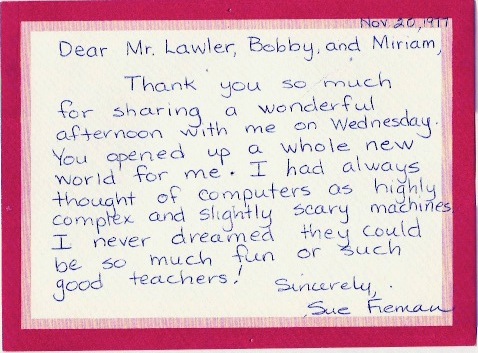 Nov. 20, 1977
Dear Mr. Lawler, Bobby, and Miriam,
Thank you so much
for sharing a wonderful
afternoon with me on Wednesday.
You opened up a whole new
world for me. I had always
thought of computers as highly
complex and slightly scary machines.
I never dreamed they could
be so much fun or such
good teachers!
Sincerely,
Sue Fieman